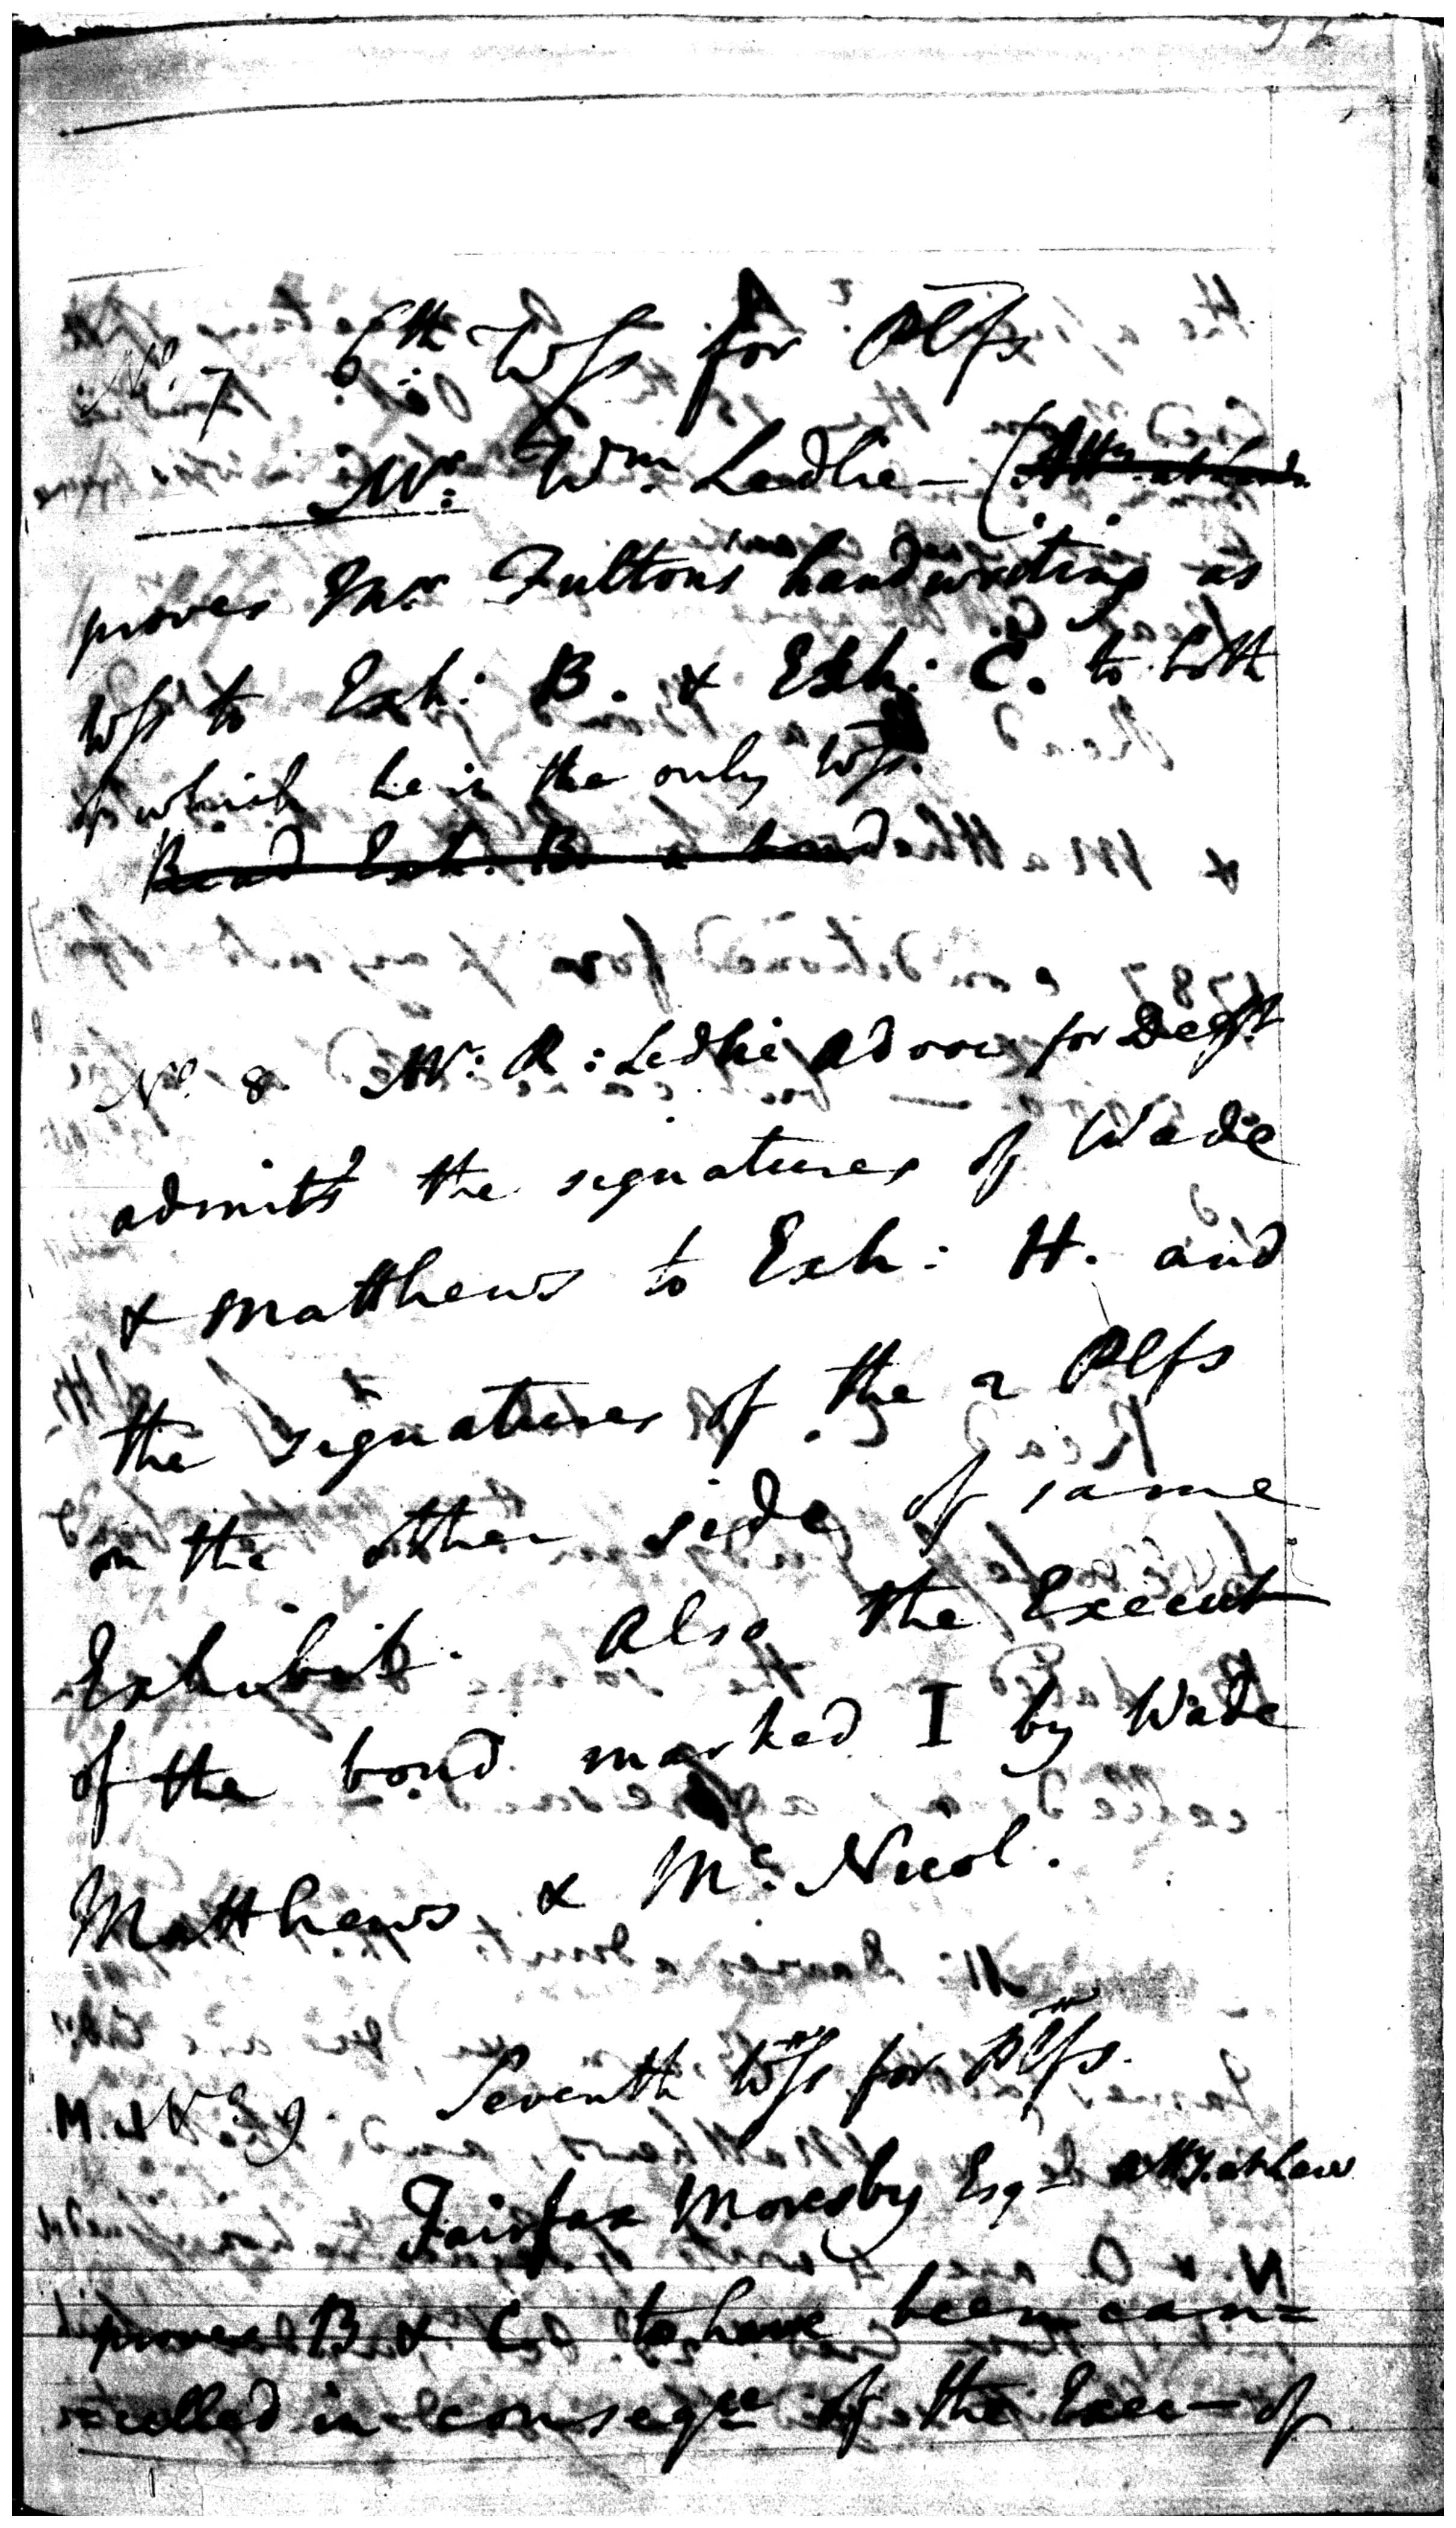 No. 7 6th Wss for Plfs
Mr. Wm. Ledlie — (Atty. at Law.
proves Mr Fultons handwriting as
Wss to Exh: B. & Exh: C. to both
of which he is the only Wss.
Read Exh. B a bond
No. 8 Mr. R: Ledlie Advoc for Deft
admits the signatures of Wade
& Matthews to Exh: H. and
the signatures of the 2 Plfs
on the other side of same
Exhibit. Also the Execut
of the bond marked I by Wade
Matthews & Mc. Nicol.
No. 9 Seventh Wss for Plfs.
Fairfax Moresby Esqe Atty. at Law
proves B & C. to have been can=
=celled in conseqce of the Exec— of